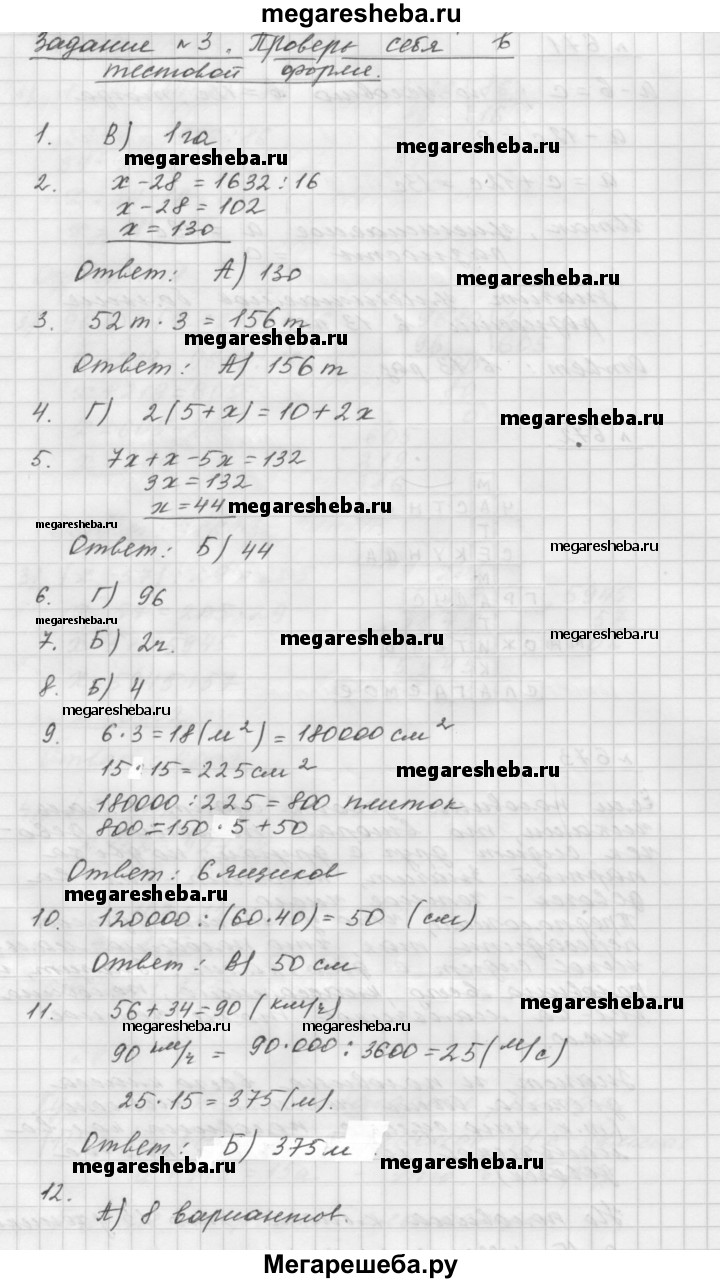 megaresheba.ru
Задание №3. Проверь себя в
тестовой форме.
1. В) 1га
megaresheba.ru
megaresheba.ru
2. x - 28 = 1632 : 16
x - 28 = 102
x = 130
Ответ: А) 130
megaresheba.ru
3. 52т · 3 = 156т
megaresheba.ru
Ответ: А) 156т
4. Г) 2(5+x) = 10+2x
megaresheba.ru
5. 7x + x - 5x = 132
3x = 132
x = 44
megaresheba.ru
megaresheba.ru
Ответ: Б) 44
megaresheba.ru
6. Г) 96
megaresheba.ru
7. Б) 2ч.
megaresheba.ru
megaresheba.ru
8. Б) 4
megaresheba.ru
9. 6·3 = 18(м²) = 180000 см²
15·15 = 225см²
megaresheba.ru
180000 : 225 = 800 плиток
800 = 150·5 + 50
Ответ: 6 ящиков
megaresheba.ru
10. 120000 : (60·40) = 50 (см)
Ответ: В) 50 см
11. 56 + 34 = 90 (км/ч)
megaresheba.ru
megaresheba.ru
megaresheba.ru
90 км/ч = 90·000 : 3600 = 25(м/с)
25·15 = 375(м).
Ответ: Б) 375м
megaresheba.ru
megaresheba.ru
12.
А) 8 вариантов.
Мегарешеба.ру